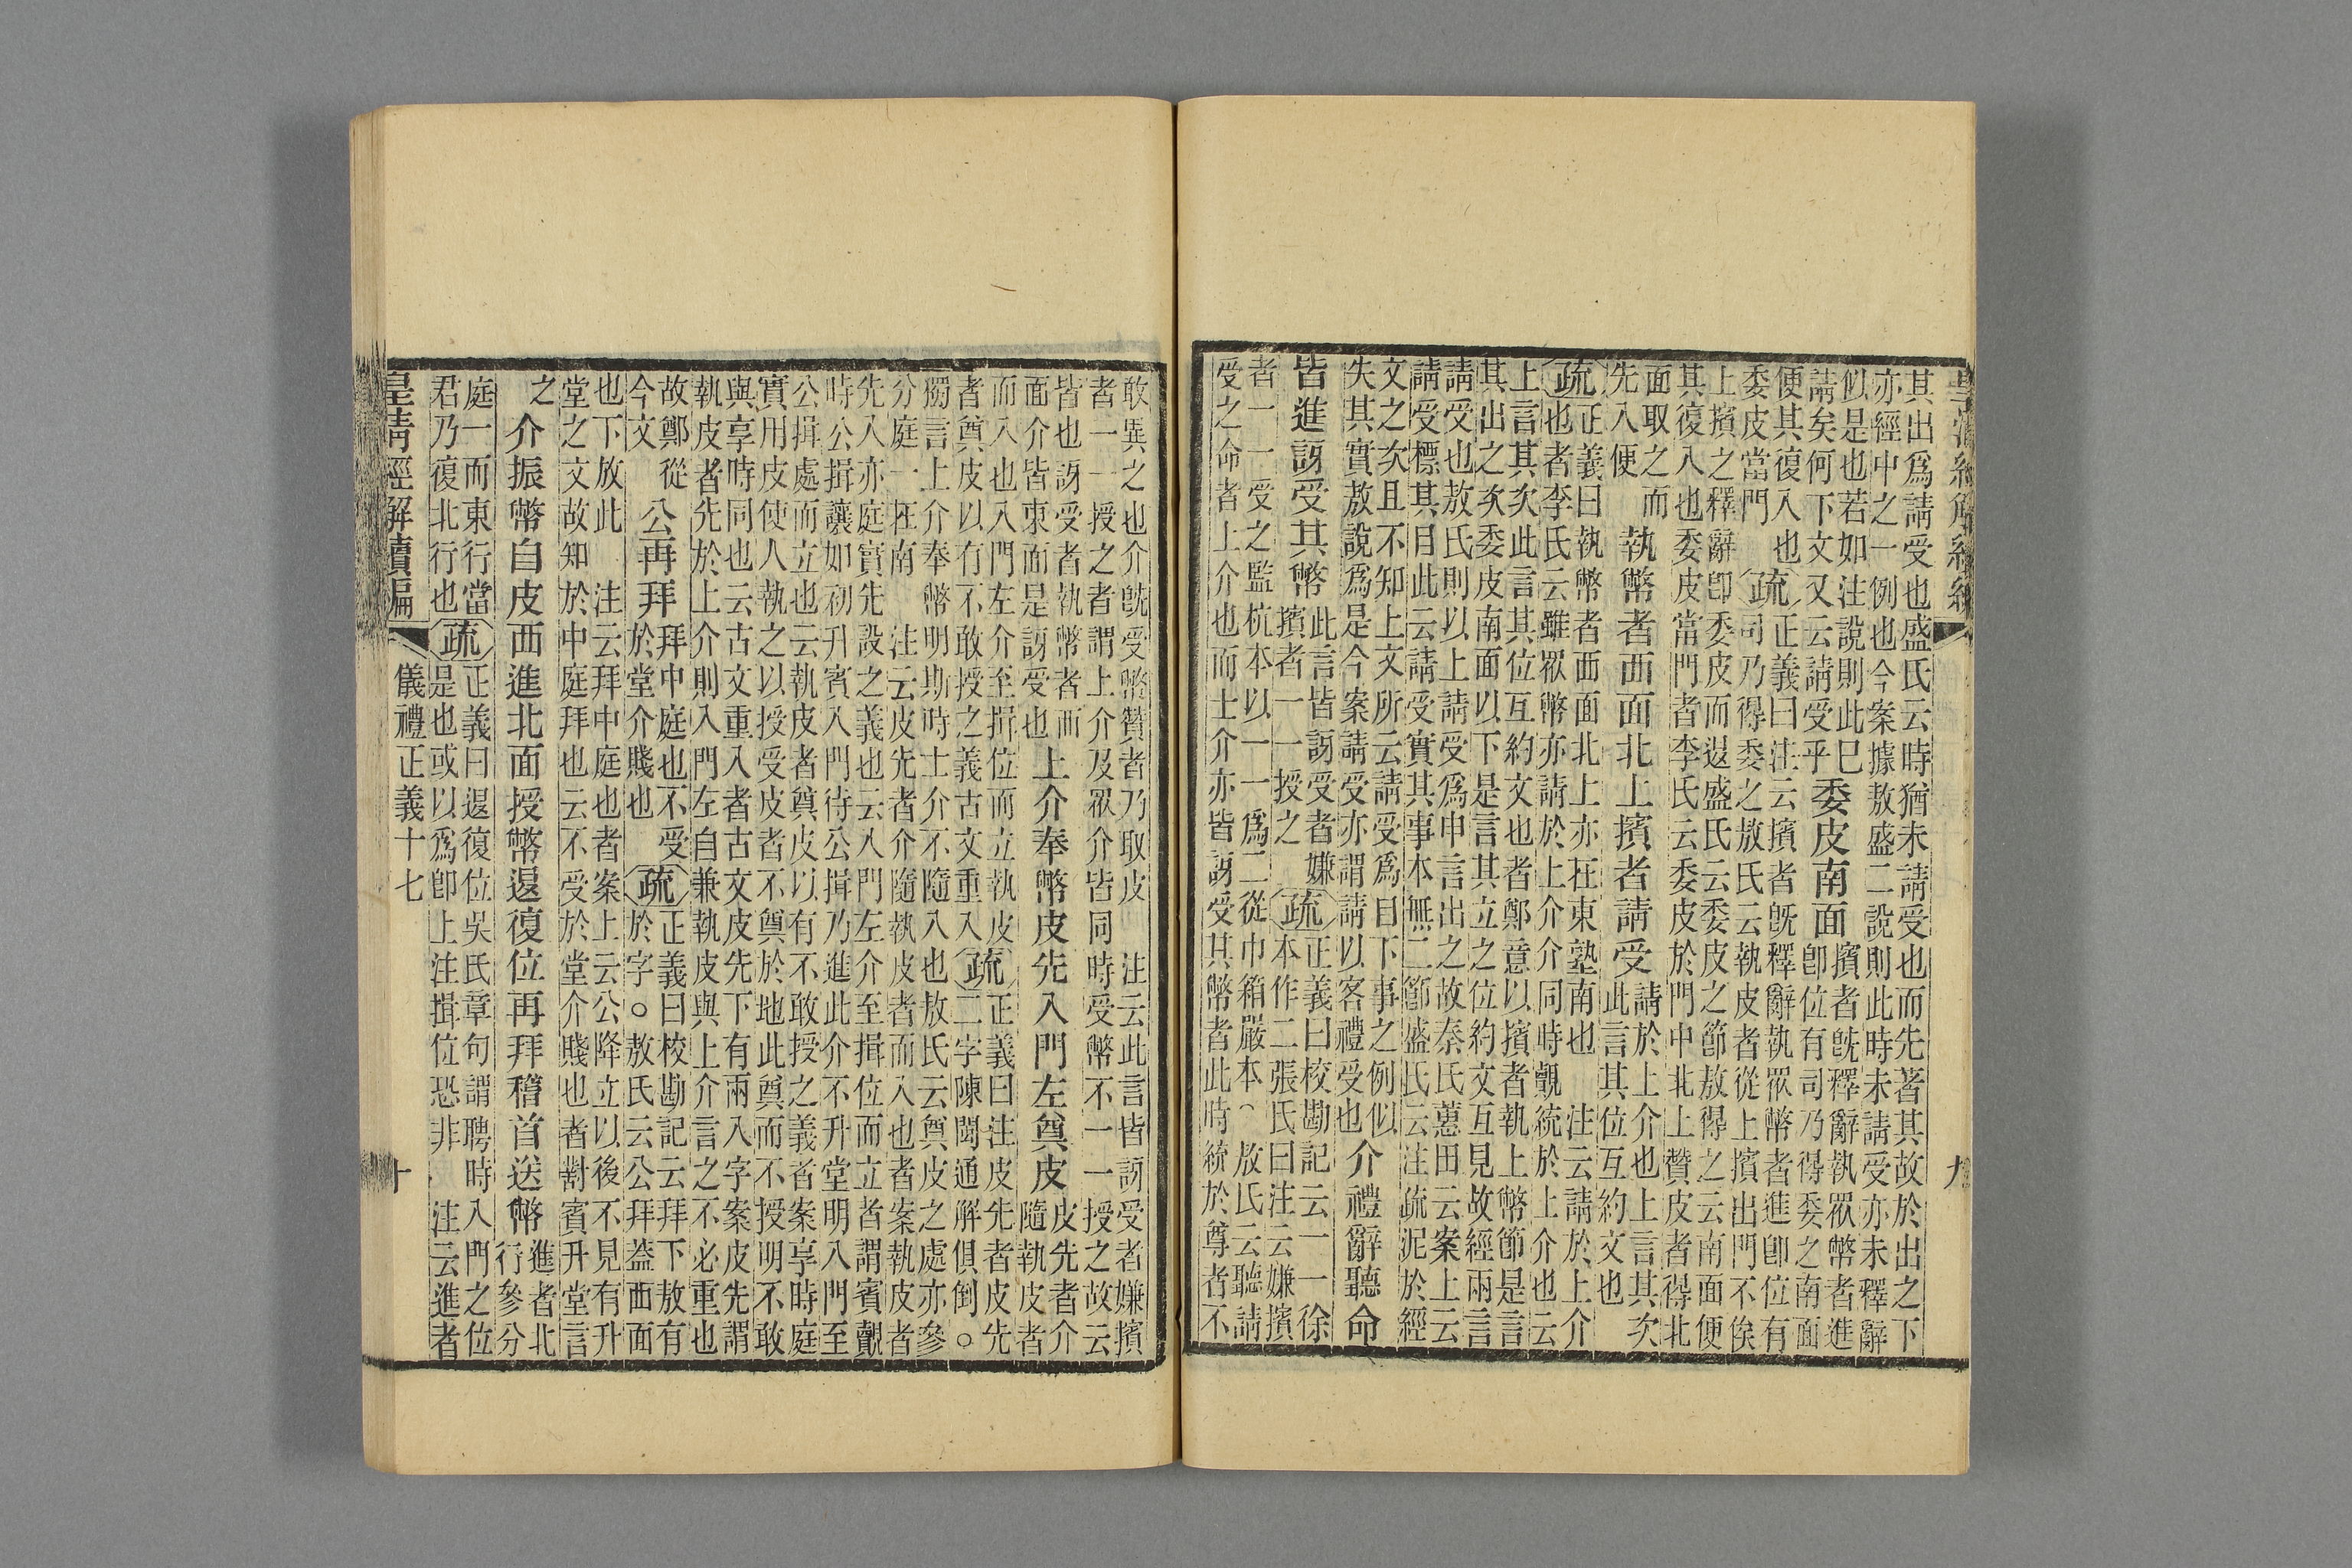 皇清經解續編
九
其出爲請受也盛氏云時猶未請受也而先著其故於出之下
亦經中之一例也今案據敖盛二說則此時未請受亦未釋辭
似是也若如注說則此巳
請矣何下文又云請受乎
委皮南面
擯者既釋辭執眾幣者進
卽位有司乃得委之南面
便其復入也
委皮當門
疏
正義曰注云擯者既釋辭執眾幣者進卽位有
司乃得委之敖氏云執皮者從上擯出門不俟
上擯之釋辭卽委皮而退盛氏云委皮之節敖得之云南面便
其復入也委皮當門者李氏云委皮於門中北上贊皮者得北
面取之而
先入便
執幣者西面北上擯者請受
請於上介也上言其次
此言其位互約文也
疏
正義曰執幣者西面北上亦在東塾南也 注云請於上介
也者李氏云雖眾幣亦請於上介介同時覿統於上介也云
上言其次此言其位互約文也者鄭意以擯者執上幣節是言
其出之次委皮南面以下是言其立之位約文互見故經兩言
請受也敖氏則以上請受爲申言出之故秦氏蕙田云案上云
請受標其目此云請受實其事本無二節盛氏云注疏泥於經
文之次且不知上文所云請受爲目下事之例似
失其實敖說爲是今案請受亦謂請以客禮受也
介禮辭聽命
皆進訝受其幣
此言皆訝受者嫌
擯者一一授之
疏
正義曰校勘記云一一徐
本作二張氏曰注云嫌擯
者一一受之監杭本以一一爲二從巾箱嚴本⌒敖氏云聽請
受之命者上介也而士介亦皆訝受其幣者此時統於尊者不
敢異之也介既受幣贊者乃取皮 注云此言皆訝受者嫌擯
者一一授之者謂上介及眾介皆同時受幣不一一授之故云
皆也訝受者執幣者西
面介皆東面是訝受也
上介奉幣皮先入門左奠皮
皮先者介
隨執皮者
而入也入門左介至揖位而立執皮
者奠皮以有不敢授之義古文重入
疏
正義曰注皮先者皮先
二字陳閩通解俱倒。
獨言上介奉幣明斯時士介不隨入也敖氏云奠皮之處亦參
分庭一在南 注云皮先者介隨執皮者而入也者案執皮者
先入亦庭實先設之義也云入門左介至揖位而立者謂賓覿
時公揖讓如初升賓入門待公揖乃進此介不升堂明入門至
公揖處而立也云執皮者奠皮以有不敢授之義者案享時庭
實用皮使人執之以授受皮者不奠於地此奠而不授明不敢
與享時同也云古文重入者古文皮先下有兩入字案皮先謂
執皮者先於上介則入門左自兼執皮與上介言之不必重也
故鄭從
今文
公再拜
拜中庭也不受
於堂介賤也
疏
正義曰校勘記云拜下敖有
於字。敖氏云公拜葢西面
也下放此 注云拜中庭也者案上云公降立以後不見有升
堂之文故知於中庭拜也云不受於堂介賤也者對賓升堂言
之
介振幣自皮西進北面授幣退復位再拜稽首送幣
進者北
行參分
庭一而東行當
君乃復北行也
疏
正義曰退復位吳氏章句謂聘時入門之位
是也或以爲卽上注揖位恐非 注云進者
皇清經解續編
儀禮正義十七
十